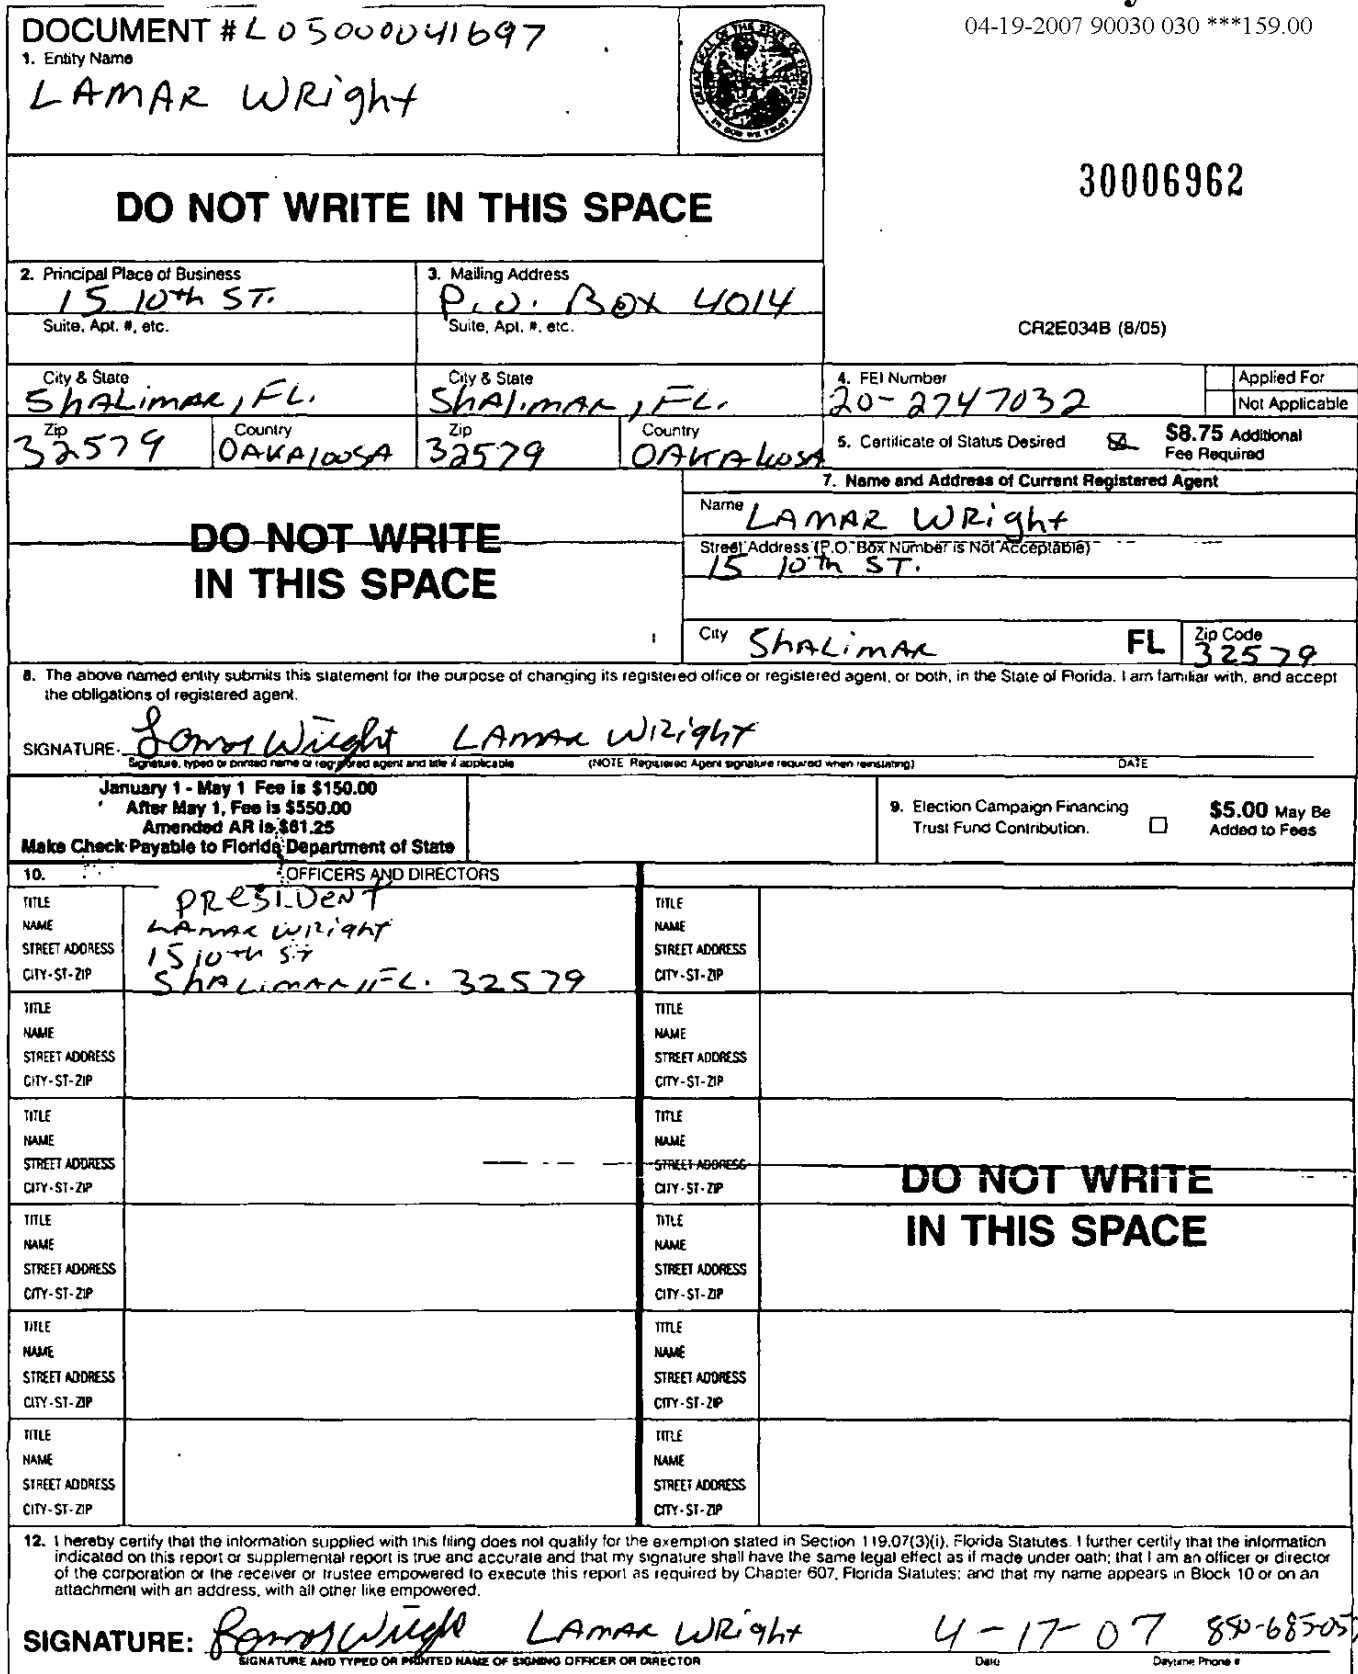 04-19-2007 90030 030 ***159.00
DOCUMENT # L05000041697
1. Entity Name
LAMAR WRight
30006962
DO NOT WRITE IN THIS SPACE
2. Principal Place of Business
15 10th ST.
3. Mailing Address
P.O. Box 4014
Suite, Apt. #, etc.
Suite, Apt. #, etc.
CR2E034B (8/05)
City & State
ShALimAR, FL.
City & State
ShALimAR, FL.
4. FEI Number
20-2747032
Applied For
Not Applicable
Zip
32579
Country
OAKAlOOSA
Zip
32579
Country
OAKAlOOSA
5. Certificate of Status Desired
$8.75 Additional
Fee Required
7. Name and Address of Current Registered Agent
Name LAMAR WRight
Street Address (P.O. Box Number is Not Acceptable)
15 10th ST.
DO NOT WRITE
IN THIS SPACE
City ShALimAR FL Zip Code
32579
8. The above named entity submits this statement for the purpose of changing its registered office or registered agent, or both, in the State of Florida. I am familiar with, and accept
the obligations of registered agent.
SIGNATURE: Lamar Wright LAMAR WRight
Signature, typed or printed name of registered agent and title if applicable (NOTE Registered Agent signature required when reinstating) DATE
January 1 - May 1 Fee is $150.00
After May 1, Fee is $550.00
Amended AR is $61.25
Make Check Payable to Florida Department of State
9. Election Campaign Financing
Trust Fund Contribution.
$5.00 May Be
Added to Fees
10. OFFICERS AND DIRECTORS
TITLE PResiDeNT
NAME LAMAR WRight
STREET ADDRESS 15 10th ST
CITY-ST-ZIP ShALimAR, FL. 32579
TITLE
NAME
STREET ADDRESS
CITY-ST-ZIP
TITLE
NAME
STREET ADDRESS
CITY-ST-ZIP
TITLE
NAME
STREET ADDRESS
CITY-ST-ZIP
TITLE
NAME
STREET ADDRESS
CITY-ST-ZIP
TITLE
NAME
STREET ADDRESS
CITY-ST-ZIP
TITLE
NAME
STREET ADDRESS
CITY-ST-ZIP
TITLE
NAME
STREET ADDRESS
CITY-ST-ZIP
TITLE
NAME
STREET ADDRESS
CITY-ST-ZIP
TITLE
NAME
STREET ADDRESS
CITY-ST-ZIP
TITLE
NAME
STREET ADDRESS
CITY-ST-ZIP
TITLE
NAME
STREET ADDRESS
CITY-ST-ZIP
DO NOT WRITE
IN THIS SPACE
12. I hereby certify that the information supplied with this filing does not qualify for the exemption stated in Section 119.07(3)(i), Florida Statutes. I further certify that the information
indicated on this report or supplemental report is true and accurate and that my signature shall have the same legal effect as if made under oath; that I am an officer or director
of the corporation or the receiver or trustee empowered to execute this report as required by Chapter 607, Florida Statutes; and that my name appears in Block 10 or on an
attachment with an address, with all other like empowered.
SIGNATURE: Lamar Wright LAMAR WRight 4-17-07 850-685-05
SIGNATURE AND TYPED OR PRINTED NAME OF SIGNING OFFICER OR DIRECTOR Date Daytime Phone #